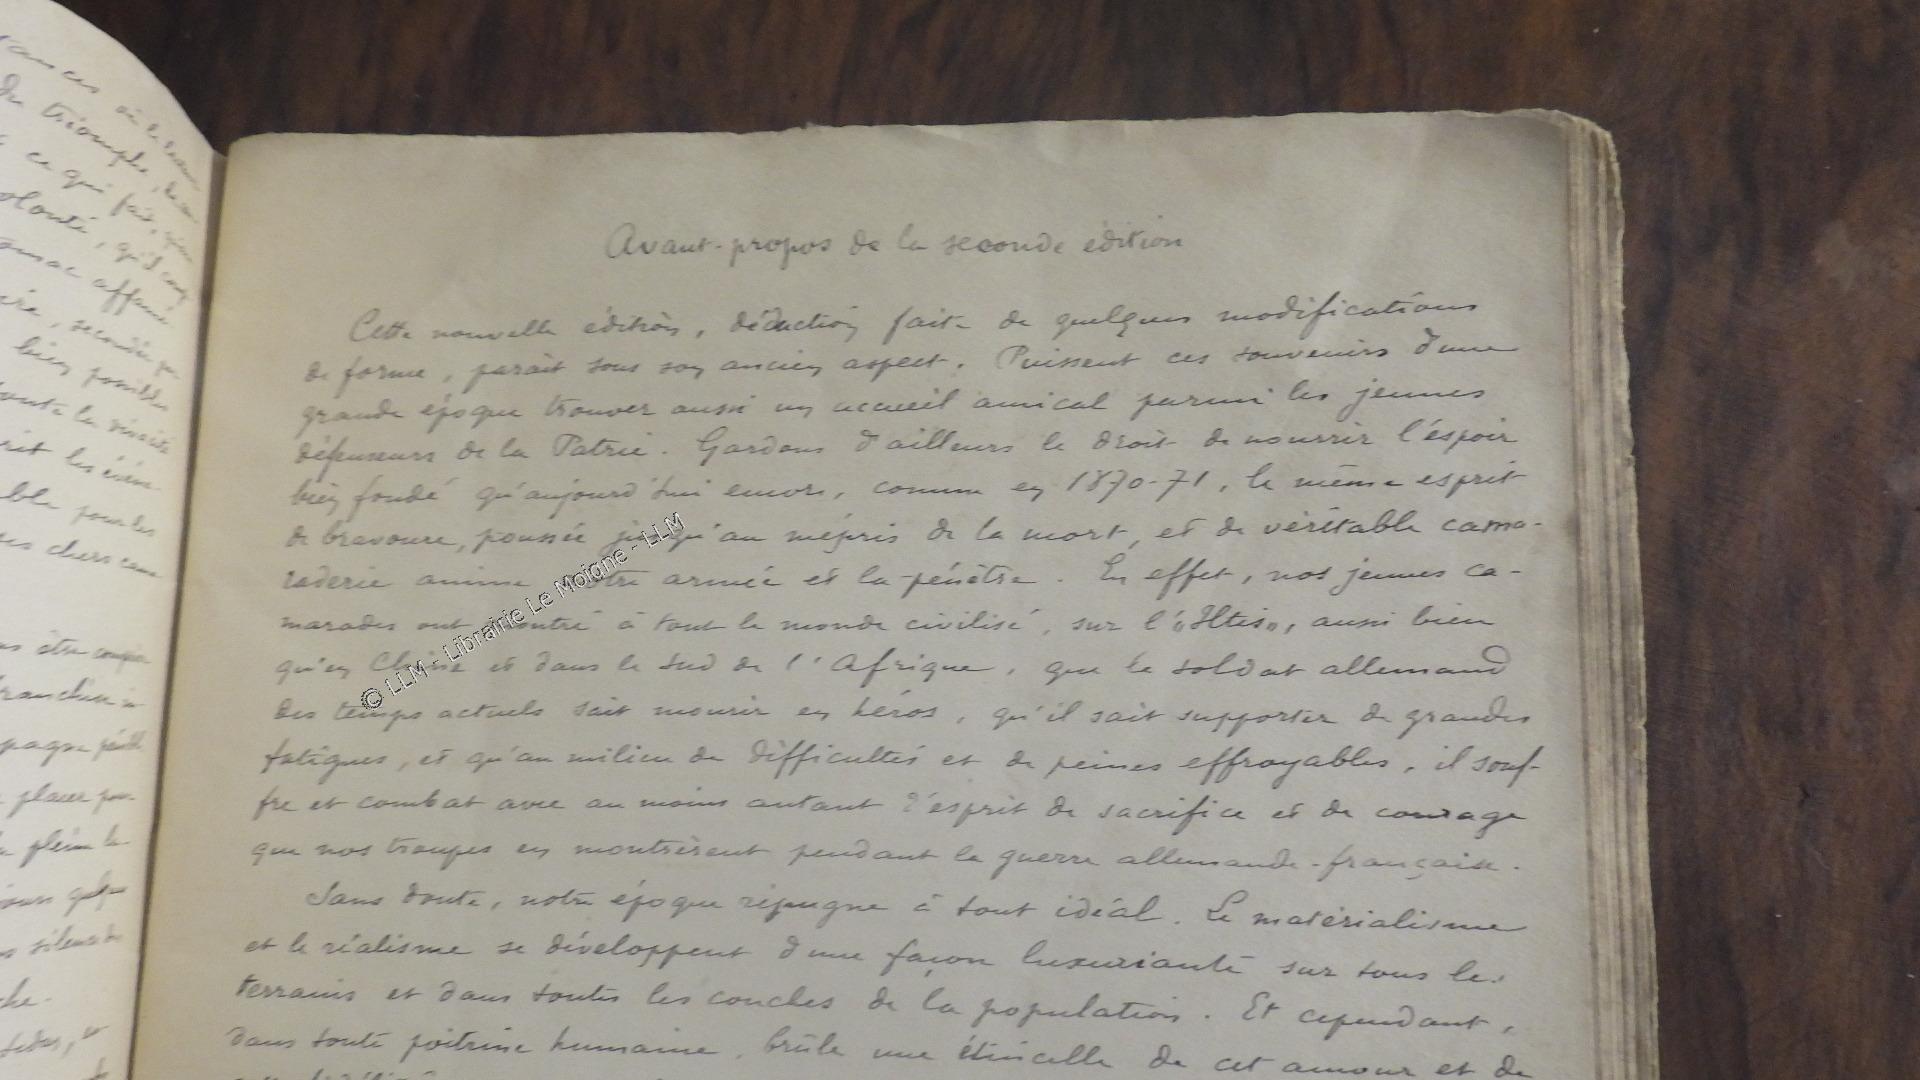 Avant-propos de la seconde édition
Cette nouvelle édition, déduction faite de quelques modifications
de forme, paraît sous son ancien aspect. Puissent ces souvenirs d'une
grande époque trouver aussi un accueil amical parmi les jeunes
défenseurs de la Patrie. Gardons d'ailleurs le droit de nourrir l'espoir
bien fondé qu'aujourd'hui encore, comme en 1870-71, le même esprit
de bravoure, poussée jusqu'au mépris de la mort, et de véritable cama-
raderie anime notre armée et la pénètre. En effet, nos jeunes ca-
marades ont montré à tout le monde civilisé, sur l'"Iltis", aussi bien
qu'en Chine et dans le Sud de l'Afrique, que le soldat allemand
des temps actuels sait mourir en héros, qu'il sait supporter de grandes
fatigues, et qu'au milieu de difficultés et de peines effroyables, il souf-
fre et combat avec au moins autant d'esprit de sacrifice et de courage
que nos troupes en montrèrent pendant la guerre allemande-française.
Sans doute, notre époque répugne à tout idéal. Le matérialisme
et le réalisme se développent d'une façon luxuriante sur tous les
terrains et dans toutes les couches de la population. Et cependant,
dans toute poitrine humaine, brûle une étincelle de cet amour et de
© LLM - Librairie Le Moigne - LLM
du triomphe,
ce qui fait,
volonté, qu'il
affamé
secondée
bien possible
toute la
rit les
pour les
ses chers cama
être
placer
plein la
silence